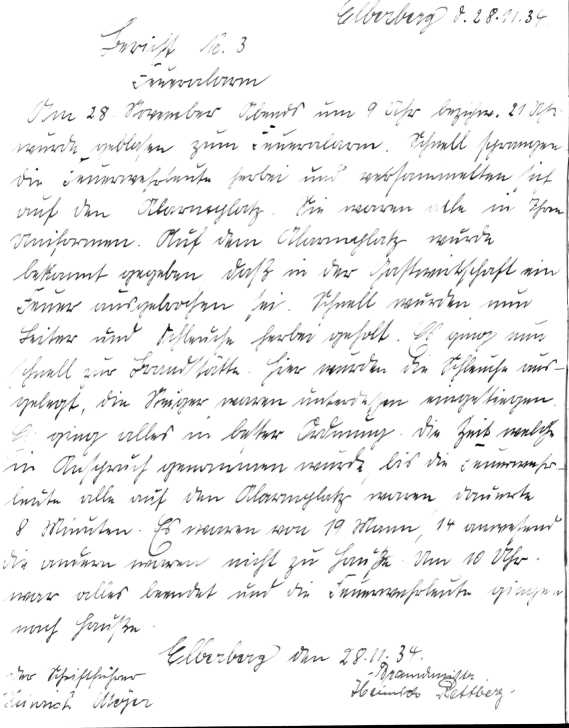 Elberberg d. 28.11.34
Bericht N. 3
Feueralarm
Am 28 November Abends um 9 Uhr bezihw. 21 Uhr
wurde geblasen zum Feueralarm. Schnell sprangen
die Feuerwehrleute herbei und versammelten sich
auf den Alarmplatz. Sie waren alle in Ihren
Uniformen. Auf dem Alarmplatz wurde
bekannt gegeben daß in der Gastwirtschaft ein
Feuer ausgebrochen sei. Schnell wurden nun
Leiter und Schleuche herbei geholt. Es ging nun
schnell zur Brandstätte. Hier wurden die Schleuche aus-
gelegt, die Steiger waren unterdeßen eingestiegen.
Es ging alles in bester Ordnung. Die Zeit welche
in Anspruch genommen wurde, bis die Feuerwehr-
leute alle auf den Alarmplatz waren dauerte
8 Minuten. Es waren von 19 Mann, 14 anwesend
die andern waren nicht zu Hauße. Um 10 Uhr
war alles beendet und die Feuerwehrleute gingen
nach Hauße.
Elberberg den 28.11.34.
Der Schriftführer Brandmeister
Heinrich Meyer Heinrich Rettberg